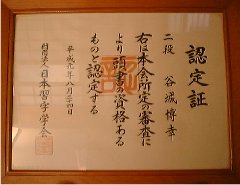 認定証
二段 谷城博幸
右は本会所定の審査に
より頭書の資格ある
ものと認定する
平成九年八月二四日
財団法人日本習字学会